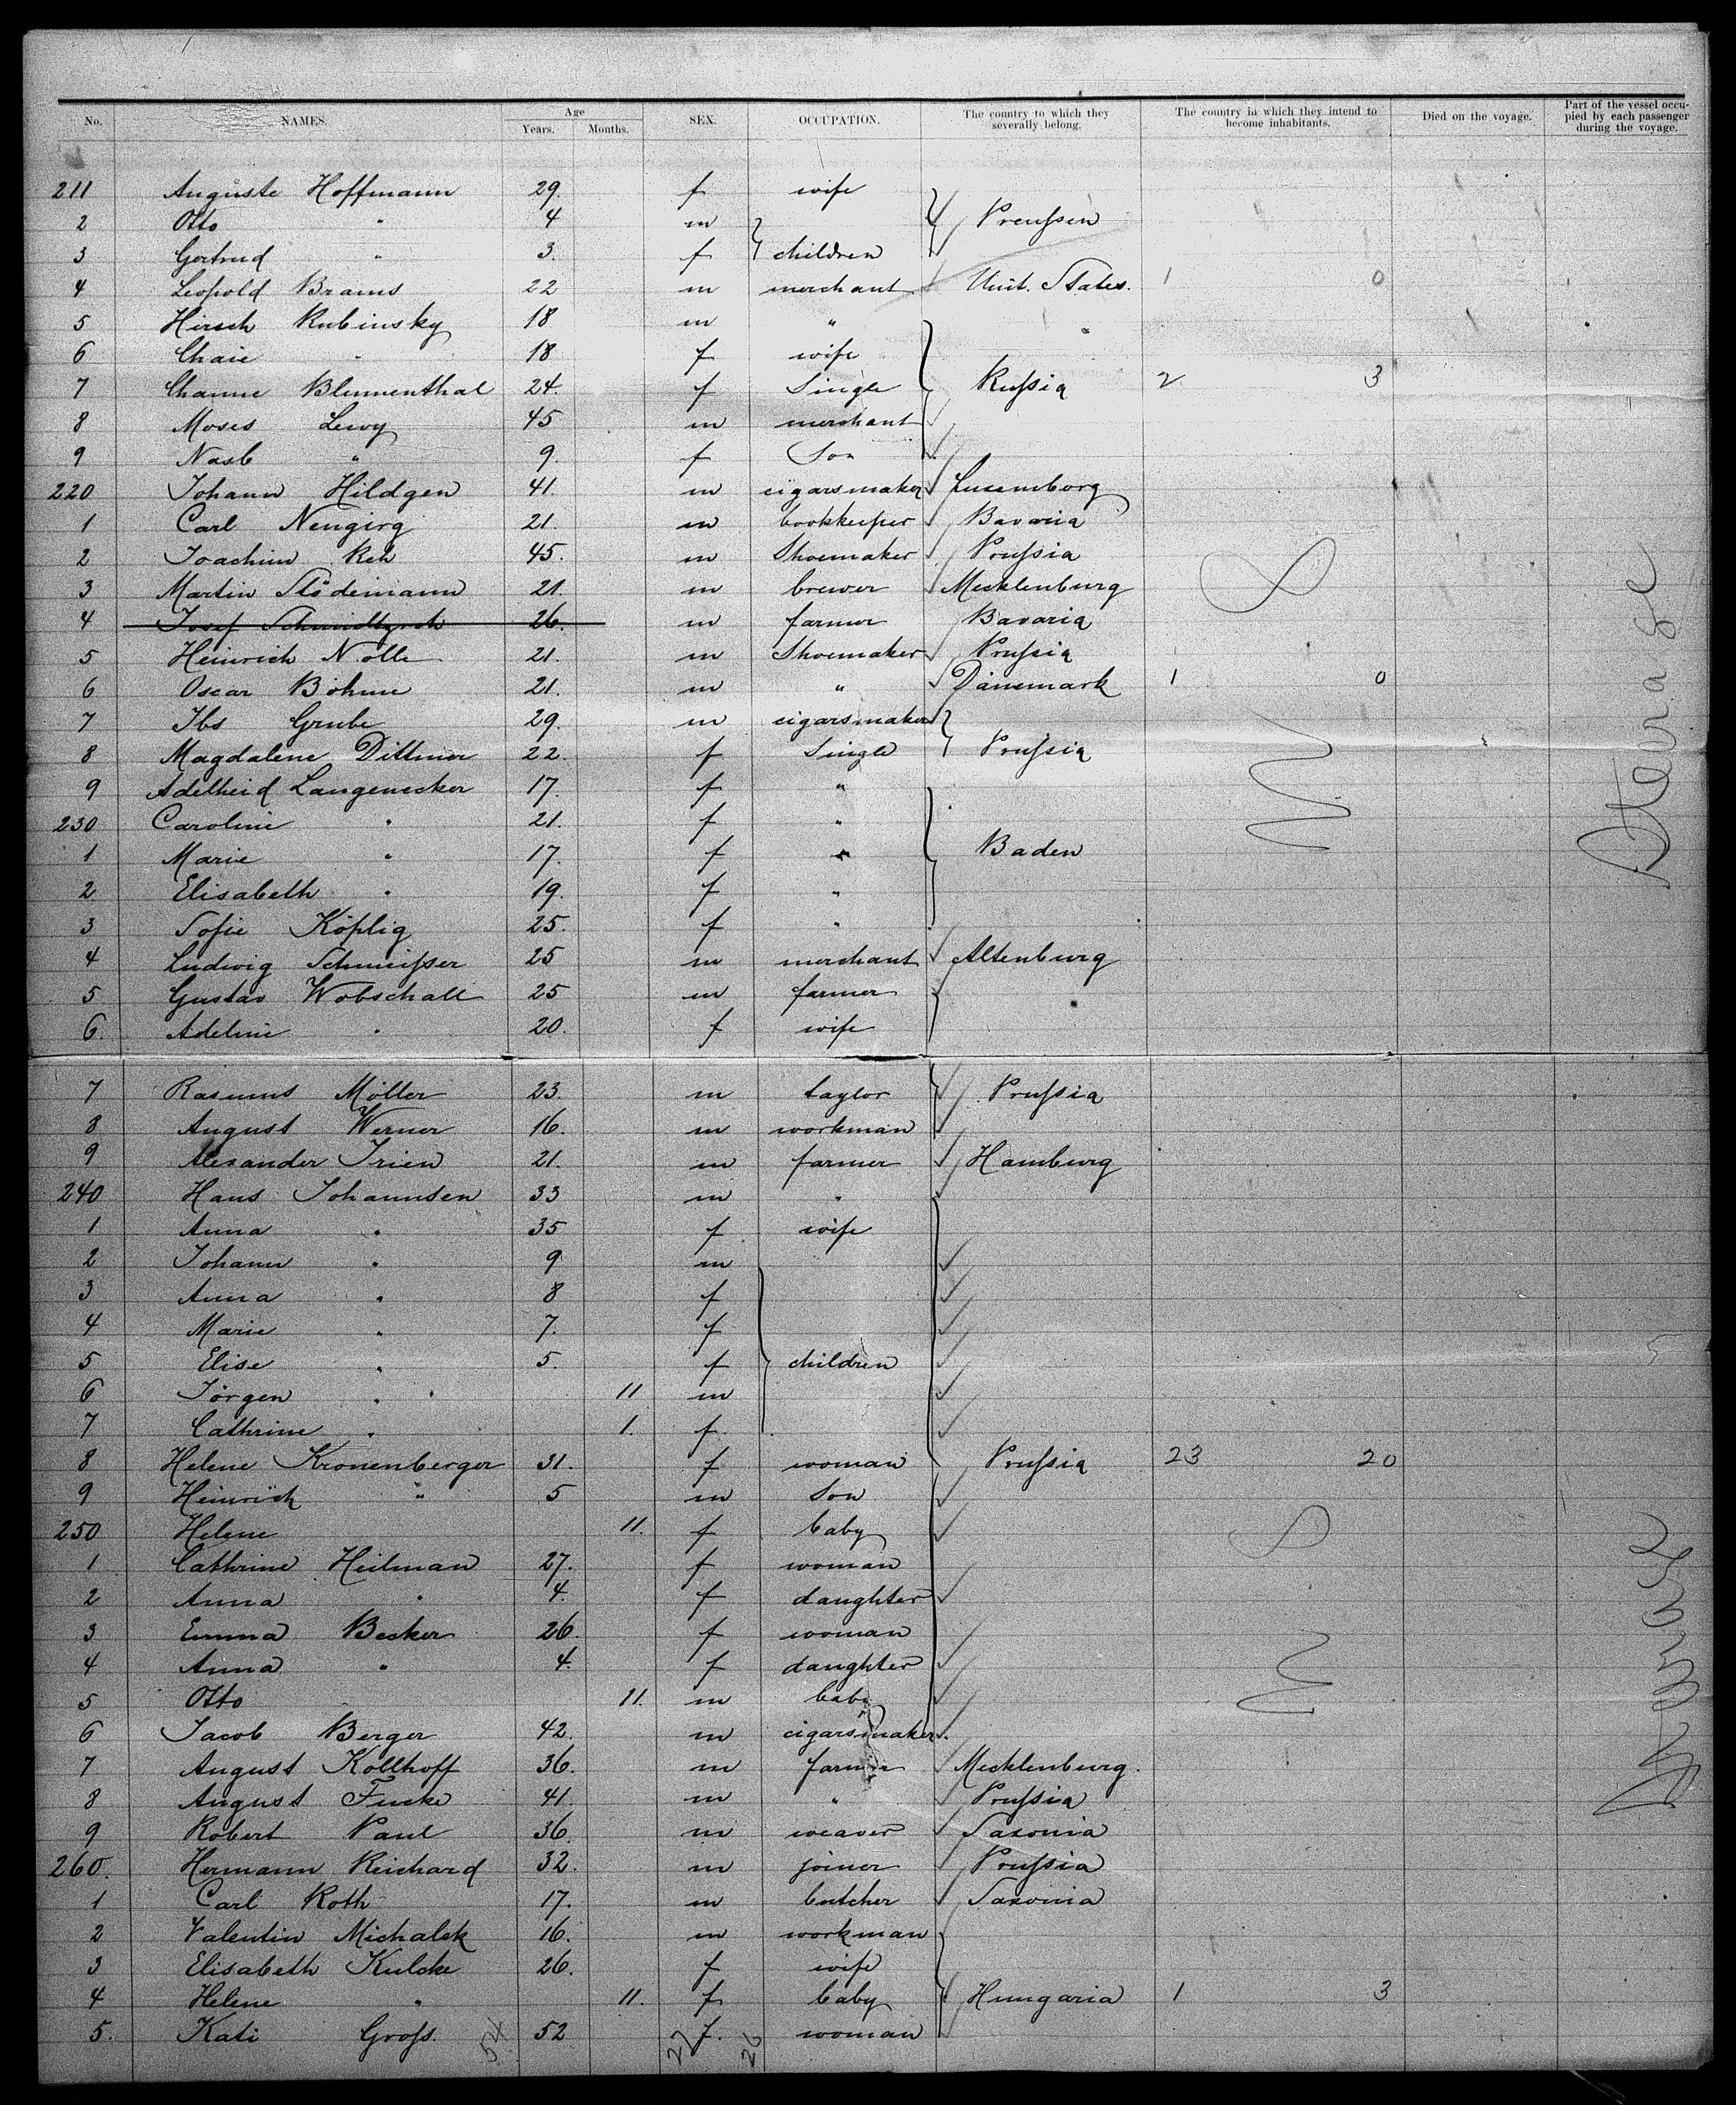 No. NAMES. Age Years. Months. SEX. OCCUPATION. The country to which they severally belong. The country in which they intend to become inhabitants. Died on the voyage. Part of the vessel occupied by each passenger during the voyage.
211 Auguste Hoffmann 29. f wife
2 Otto " 4 m Preußen
3 Gertrud " 3. f children
4 Leopold Brams 22 m merchant Unit. States. 1 0
5 Hirsch Rubinsky 18 m " "
6 Chaie " 18 f wife
7 Channe Blumenthal 24. f Single Rußia 2 3
8 Moses Lewy 45 m merchant
9 " 9. f Son
220 Johann Hildgen 41. m cigarsmaker Luxemborg
1 Carl Neugirg 21. m bookkeeper Bavaria
2 Joachim Reh 45. m Shoemaker Prußia
3 Martin Städemann 21. m brewer Mecklenburg
4 Josef 26. m farmer Bavaria
5 Heinrich Nolle 21. m Shoemaker Prußia
6 Oscar Böhme 21. m " Dänemark 1 0
7 Ibs Grube 29. m cigarsmaker
8 Magdalene Dittmer 22. f Single Prußia
9 Adelheid Langenecker 17. f "
230 Caroline " 21. f "
1 Marie " 17. f " Baden
2 Elisabeth " 19. f "
3 Sofie Köplig 25. f "
4 Ludwig Schmeißer 25 m merchant Altenburg
5 Gustav Wobschall 25 m farmer
6. Adeline " 20. f wife
7 Rasmus Möller 23. m taylor Prußia
8 August Werner 16. m workman
9 Alexander Irien 21. m farmer Hamburg
240 Hans Johannsen 33 m "
1 Anna " 35 f wife
2 Johann " 9 m
3 Anna " 8 f
4 Marie " 7. f
5 Elise " 5. f children
6 Jörgen " 11 m
7 Cathrine " 1. f.
8 Helene Kronenberger 31. f woman Prußia 23 20
9 Heinrich " 5 m Son
250 Helene 11. f baby
1 Cathrine Heilman 27. f woman
2 Anna " 4. f daughter
3 Emma Becker 26. f woman
4 Anna " 4. f daughter
5 Otto 11. m baby
6 Jacob Berger 42. m cigarsmaker
7 August Kollhoff 36. m farmer Mecklenburg.
8 August Fucke 41. m " Prußia
9 Robert Paul 36. m weaver Saxonia
260. Hermann Reichard 32. m joiner Prußia
1 Carl Roth 17. m butcher Saxonia
2 Valentin Michalek 16. m workman
3 Elisabeth Kulcke 26. f wife
4 Helene " 11. f baby Hungaria 1 3
5. Kati Groß. 52 f. woman
54 27 26
Steerage